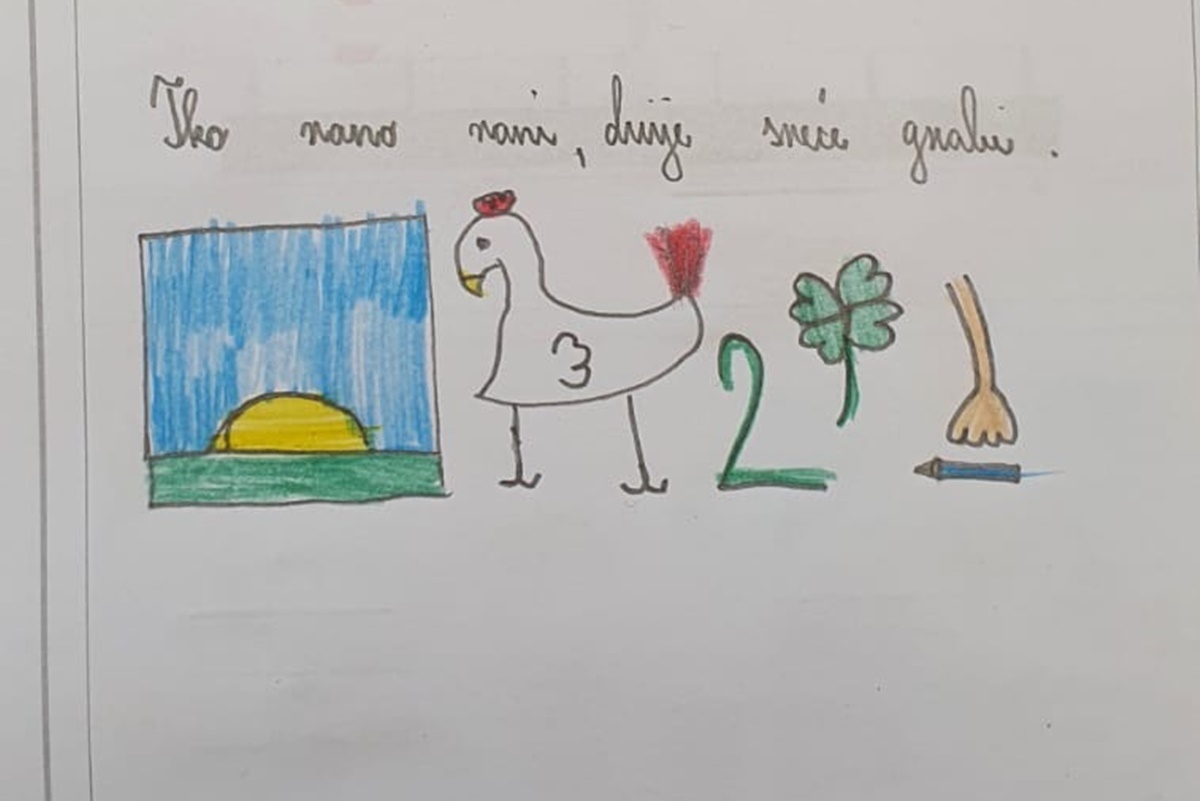 Tko rano rani, dvije sreće grabi.
3
2